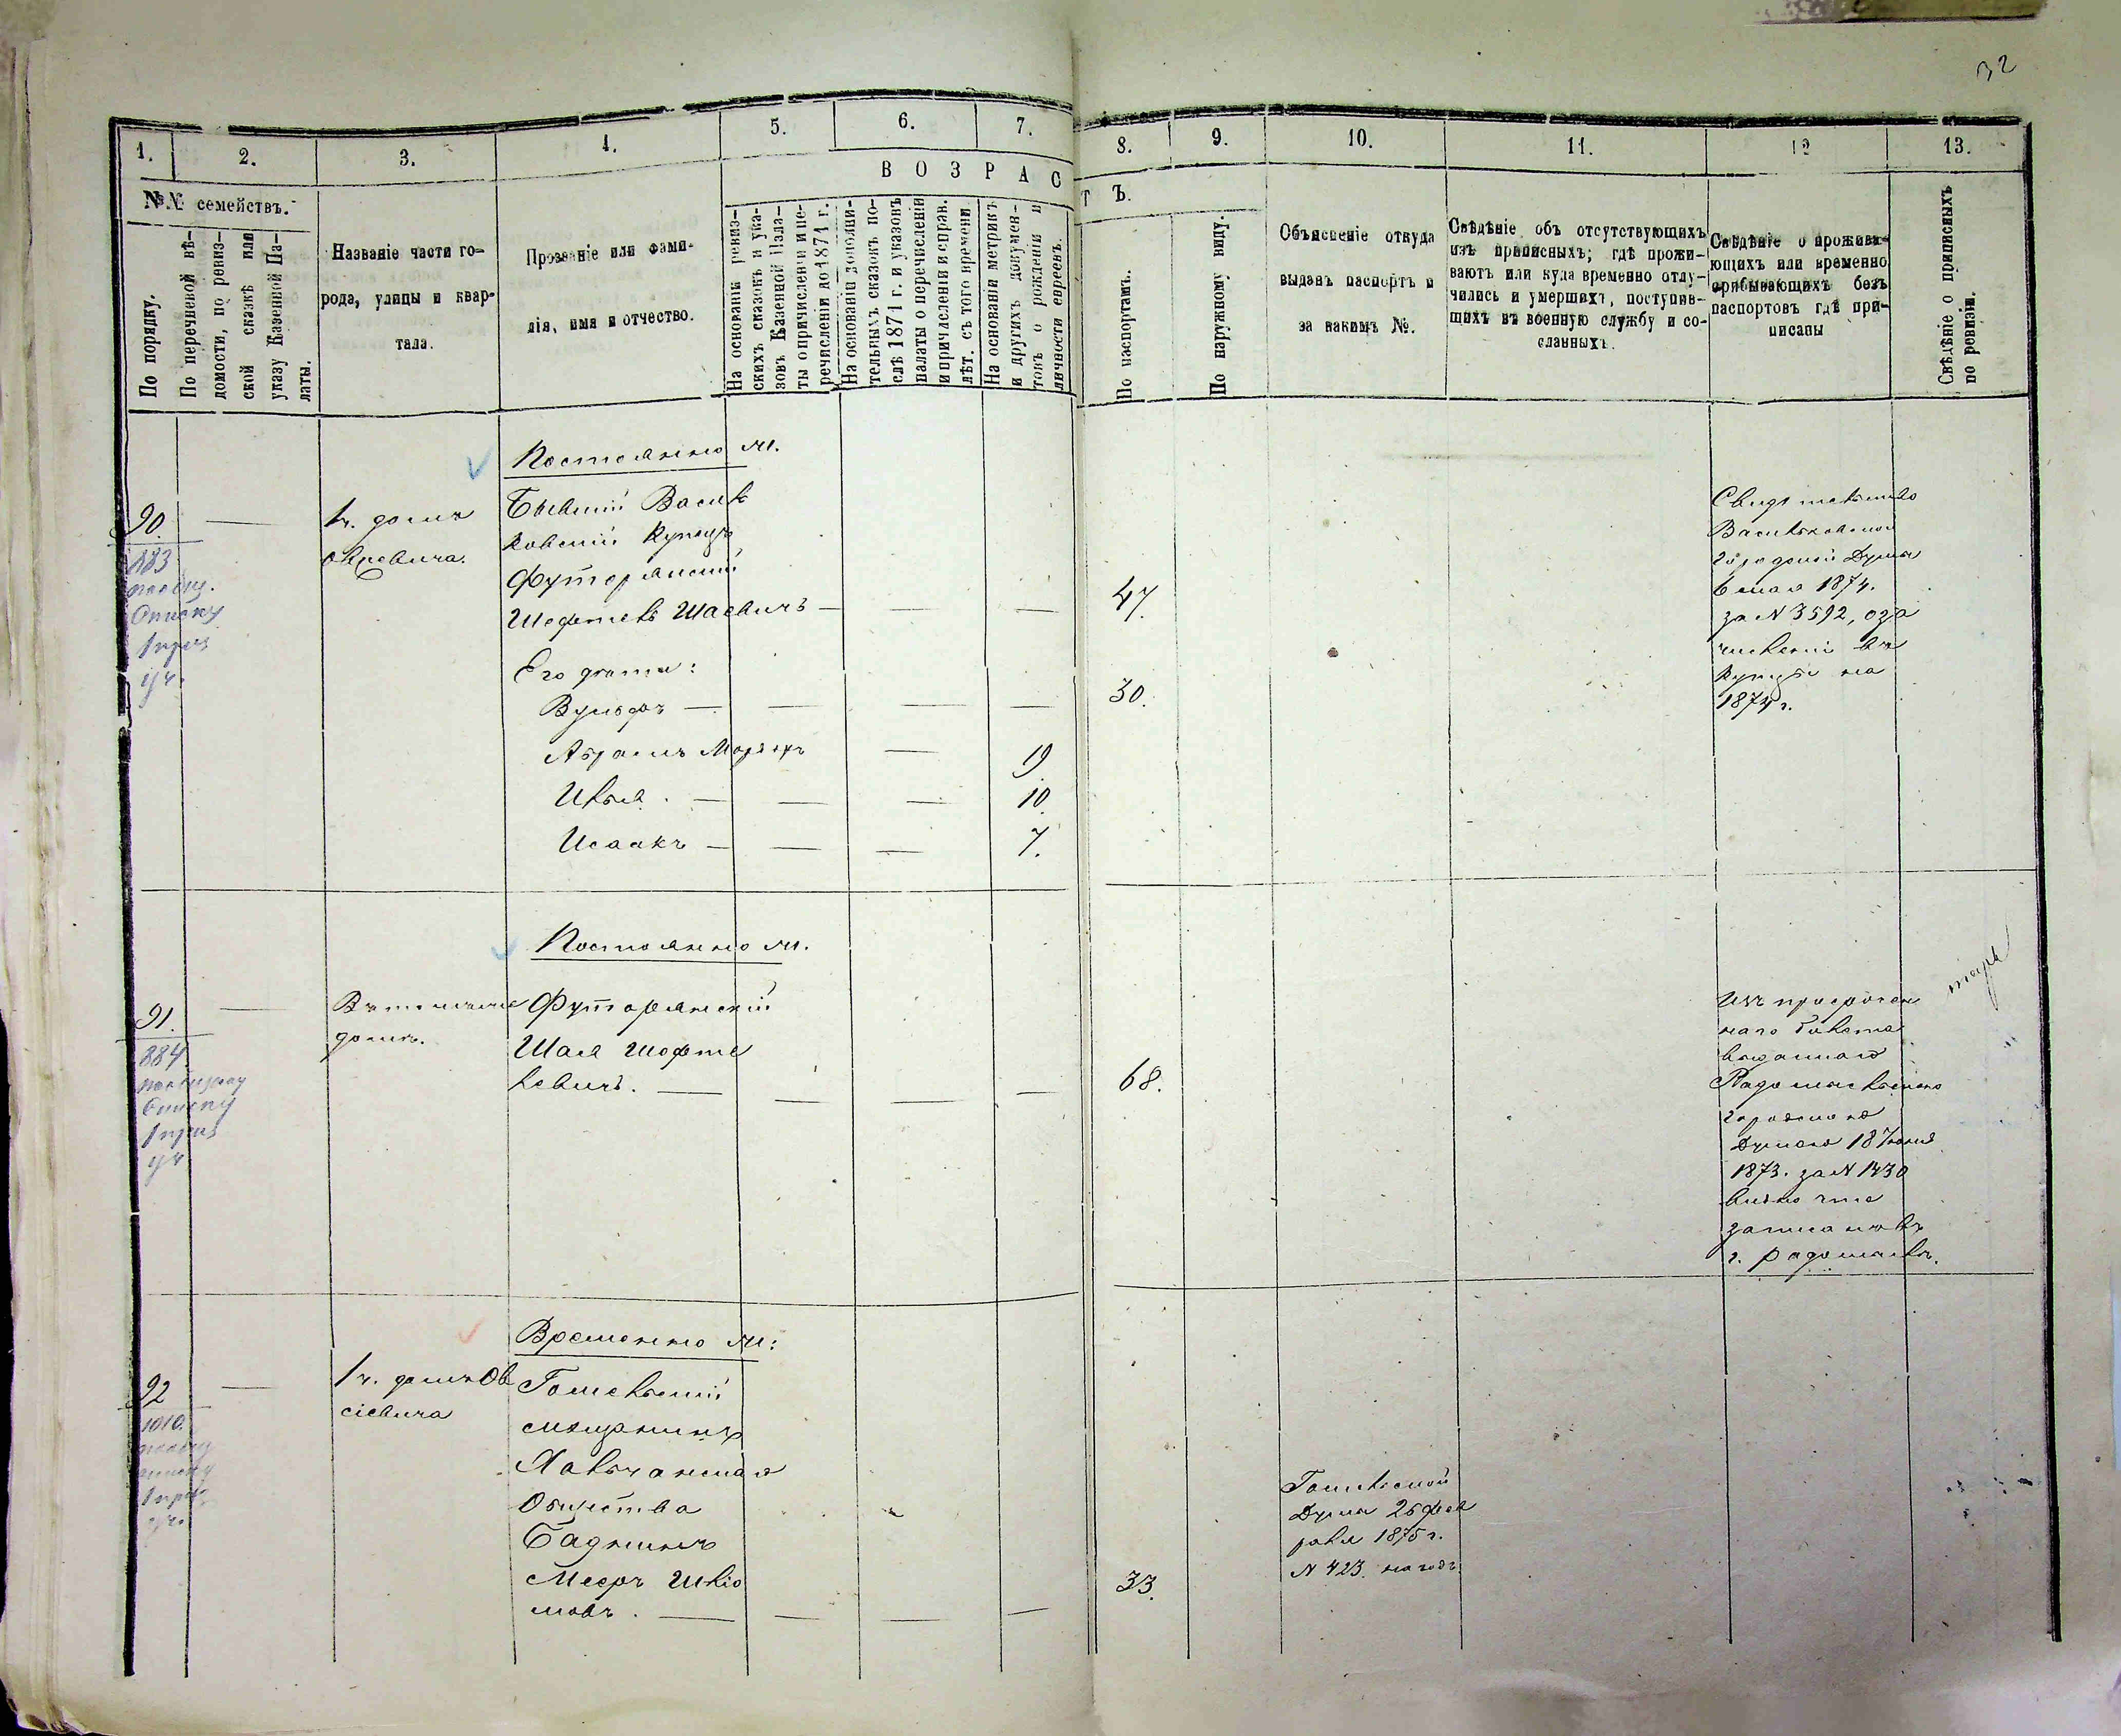 32
1.
2.
3.
4.
5.
6.
7.
8.
9.
10.
11.
12
13.
В О З Р А С
Т Ъ.
№№ семействъ.
По порядку.
По перечневой вѣ-
домости, по ревиз-
ской сказкѣ или
указу Казенной Па-
латы.
Названіе части го-
рода, улицы и квар-
тала.
Прозваніе или фами-
лія, имя и отчество.
На основаніи ревиз-
скихъ сказокъ и ука-
зовъ Казенной Пала-
ты о причисленіи и пе-
речисленіи до 1871 г.
На основаніи дополни-
тельныхъ сказокъ по-
слѣ 1871 г. и указовъ
палаты о перечисленіи
и причисленіи и справ.
лѣт. съ того времени
На основаніи метрикъ
и другихъ докумен-
товъ о рожденіи и
личности евреевъ.
По паспортамъ.
По наружному виду.
Объясненіе откуда
выданъ паспортъ и
за какимъ №.
Свѣдѣніе объ отсутствующихъ
изъ приписныхъ; гдѣ прожи-
ваютъ или куда временно отлу-
чились и умершихъ, поступив-
шихъ въ военную службу и со-
сланныхъ.
Свѣдѣніе о прожива-
ющихъ или временно
прибывающихъ безъ
паспортовъ гдѣ при-
писаны
Свѣдѣніе о приписныхъ
по ревизіи.
Постоянно м.
90.
883
1 ч. домъ
Бывшій Василь
ковскій Купецъ
Футорянскій
Шефтель Шаевичъ
47.
Его дѣти:
Вульфъ
30.
Абрамъ Мордхъ
19
Июля
10.
Исаакъ
7.
Свидѣтельство
Васильковской
Городской Думы
6 мая 1874.
за N 3592, о за
численіи въ
купцы на
1874 г.
Постоянно м.
91.
884
Въ томъ же
домѣ.
Футорянскій
Шая Шефте
левичъ.
68.
Изъ просрочен
наго билета
выданнаго
Радомысльскою
городскою
Думою 18 Іюня
1873. за N 1430
видно что
записанъ въ
г. Радомыслѣ.
Временно м:
92
1010.
1 ч. домъ Ов
сіевича
Гомельскій
мѣщанинъ
Общества
Мееръ Шліо
мовъ.
33.
Гомельской
Думы 26 фев
раля 1875 г.
N 423. на годъ